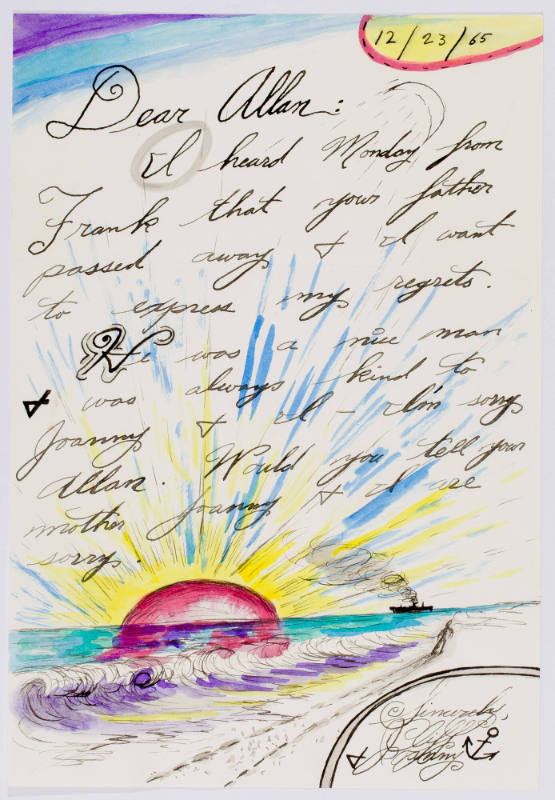 12/23/65
Dear Allan:
I heard Monday from
Frank that your father
passed away & I want
to express my regrets.
He was a nice man
& was always kind to
Joanny & I - I'm sorry
Allan. Would you tell your
mother Joanny & I are
sorry.
Sincerely,
Cliff
& Joanny